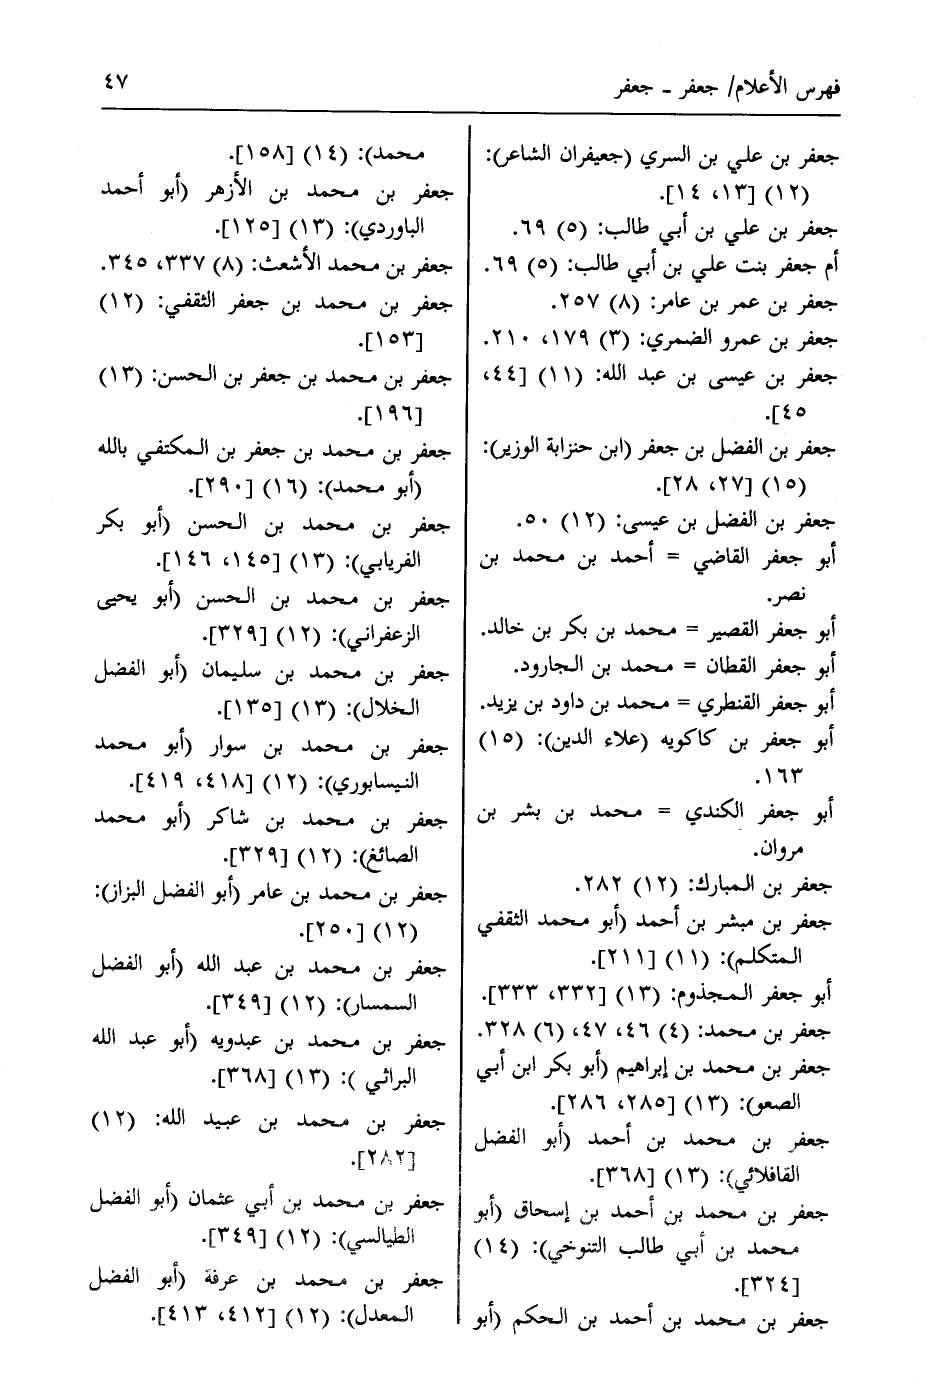 فهرس الأعلام/ جعفر - جعفر
٤٧
جعفر بن علي بن السري (جعيفران الشاعر):
(١٢) [١٣، ١٤].
جعفر بن علي بن أبي طالب: (٥) ٦٩.
أم جعفر بنت علي بن أبي طالب: (٥) ٦٩.
جعفر بن عمر بن عامر: (٨) ٢٥٧.
جعفر بن عمرو الضمري: (٣) ١٧٩، ٢١٠.
جعفر بن عيسى بن عبد الله: (١١) [٤٤،
٤٥].
جعفر بن الفضل بن جعفر (ابن حنزابة الوزير):
(١٥) [٢٧، ٢٨].
جعفر بن الفضل بن عيسى: (١٢) ٥٠.
أبو جعفر القاضي = أحمد بن محمد بن
نصر.
أبو جعفر القصير = محمد بن بكر بن خالد.
أبو جعفر القطان = محمد بن الجارود.
أبو جعفر القنطري = محمد بن داود بن يزيد.
أبو جعفر بن كاكويه (علاء الدين): (١٥)
١٦٣.
أبو جعفر الكندي = محمد بن بشر بن
مروان.
جعفر بن المبارك: (١٢) ٢٨٢.
جعفر بن مبشر بن أحمد (أبو محمد الثقفي
المتكلم): (١١) [٢١١].
أبو جعفر المجذوم: (١٣) [٣٣٢، ٣٣٣].
جعفر بن محمد: (٤) ٤٦، ٤٧، (٦) ٣٢٨.
جعفر بن محمد بن إبراهيم (أبو بكر ابن أبي
الصعو): (١٣) [٢٨٥، ٢٨٦].
جعفر بن محمد بن أحمد (أبو الفضل
القافلائي): (١٣) [٣٦٨].
جعفر بن محمد بن أحمد بن إسحاق (أبو
محمد بن أبي طالب التنوخي): (١٤)
[٣٢٤].
جعفر بن محمد بن أحمد بن الحكم (أبو
محمد): (١٤) [١٥٨].
جعفر بن محمد بن الأزهر (أبو أحمد
الباوردي): (١٣) [١٢٥].
جعفر بن محمد الأشعث: (٨) ٣٣٧، ٣٤٥.
جعفر بن محمد بن جعفر الثقفي: (١٢)
[١٥٣].
جعفر بن محمد بن جعفر بن الحسن: (١٣)
[١٩٦].
جعفر بن محمد بن جعفر بن المكتفي بالله
(أبو محمد): (١٦) [٢٩٠].
جعفر بن محمد بن الحسن (أبو بكر
الفريابي): (١٣) [١٤٥، ١٤٦].
جعفر بن محمد بن الحسن (أبو يحيى
الزعفراني): (١٢) [٣٢٩].
جعفر بن محمد بن سليمان (أبو الفضل
الخلال): (١٣) [١٣٥].
جعفر بن محمد بن سوار (أبو محمد
النيسابوري): (١٢) [٤١٨، ٤١٩].
جعفر بن محمد بن شاكر (أبو محمد
الصائغ): (١٢) [٣٢٩].
جعفر بن محمد بن عامر (أبو الفضل البزاز):
(١٢) [٢٥٠].
جعفر بن محمد بن عبد الله (أبو الفضل
السمسار): (١٢) [٣٤٩].
جعفر بن محمد بن عبدويه (أبو عبد الله
البراثي ): (١٣) [٣٦٨].
جعفر بن محمد بن عبيد الله: (١٢)
[٢٨٢].
جعفر بن محمد بن أبي عثمان (أبو الفضل
الطيالسي): (١٢) [٣٤٩].
جعفر بن محمد بن عرفة (أبو الفضل
المعدل): (١٢) [٤١٢، ٤١٣].